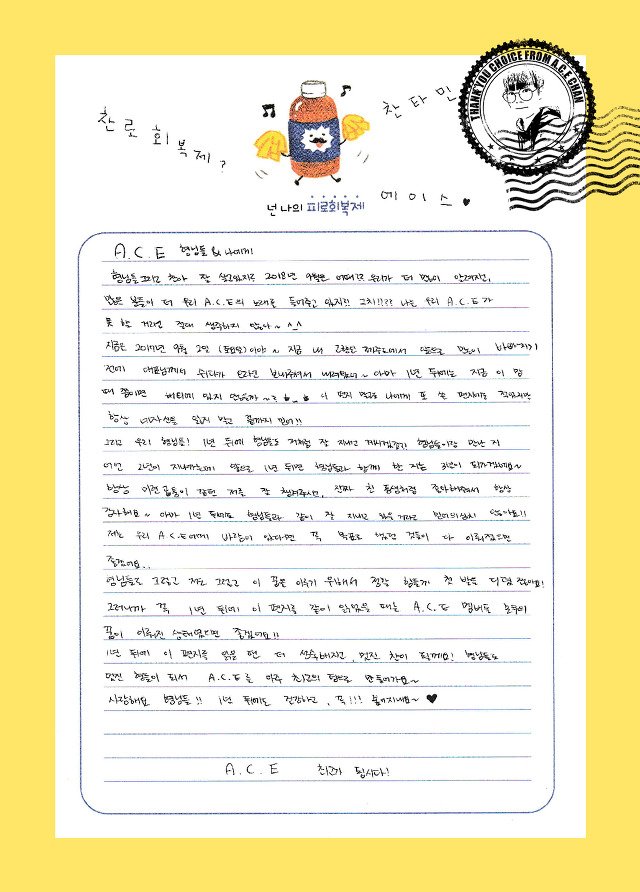 THANK YOU CHOICE FROM A.C.E CHAN
찬로회복제?
찬타민
넌 나의 피로회복제
에이스♥
A.C.E 형님들 & 나에게!
형님들 그리고 찬아 잘 살고있지? 2018년 9월은 어때?? 우리가 더 많이 알려지고,
많은 분들이 더 우리 A.C.E의 노래를 들어주고 있지!! 그치!!?? 나는 우리 A.C.E가
못 할 거라고 절대 생각하지 않아~ ^^
지금은 2017년 9월 2일 (토요일)이야~ 지금 내 고향인 제주도에서 앞으로 많이 바빠지기
전에 대표님께서 쉬다가 오라고 보내주셔서 내려왔어~ 아마 1년 뒤에는 지금 이 맘
때 쯤이면 버티며 있지 않을까~?
이 편지 말고도 나에게 또 쓴 편지에도 적었지만
항상 여자친구 잃지 말고 끝까지 믿어!!
그리고 우리 형님들! 1년 뒤에 형님들도 저처럼 잘 지내고 계시겠죠? 형님들이랑 만난 지
어언 2년이 지나가는데 앞으로 1년 뒤면 형님들과 함께 한 지는 3년이 되가겠네요~
항상 이런 저를 잘 챙겨주시고, 진짜 친 동생처럼 좋아해줘서 항상
감사해요~ 아마 1년 뒤에도 형님들과 같이 잘 지내고 있을 거라고 믿어 의심치 않아요!!
저는 우리 A.C.E에게 바람이 있다면 꼭 목표로 했던 것들이 다 이뤄졌으면
좋겠어요..
형님들도 그렇고 저도 그렇고 이 꿈을 이루기 위해서 직장 힘들게 첫 발을 디뎠잖아요!
그러니까 꼭 1년 뒤에 이 편지를 같이 읽었을 때는 A.C.E 멤버들 모두의
꿈이 이루어진 상태였으면 좋겠어요!!
1년 뒤에 이 편지를 읽을 땐 더 성숙해지고, 멋진 찬이 될게요! 형님들도
멋진 형들이 되서 A.C.E를 아주 최고의 팀으로 만들어가요~
사랑해요 형님들!! 1년 뒤에도 건강하고, 꼭!!! 붙어지내요~ ♥
A.C.E 최고가 됩시다!